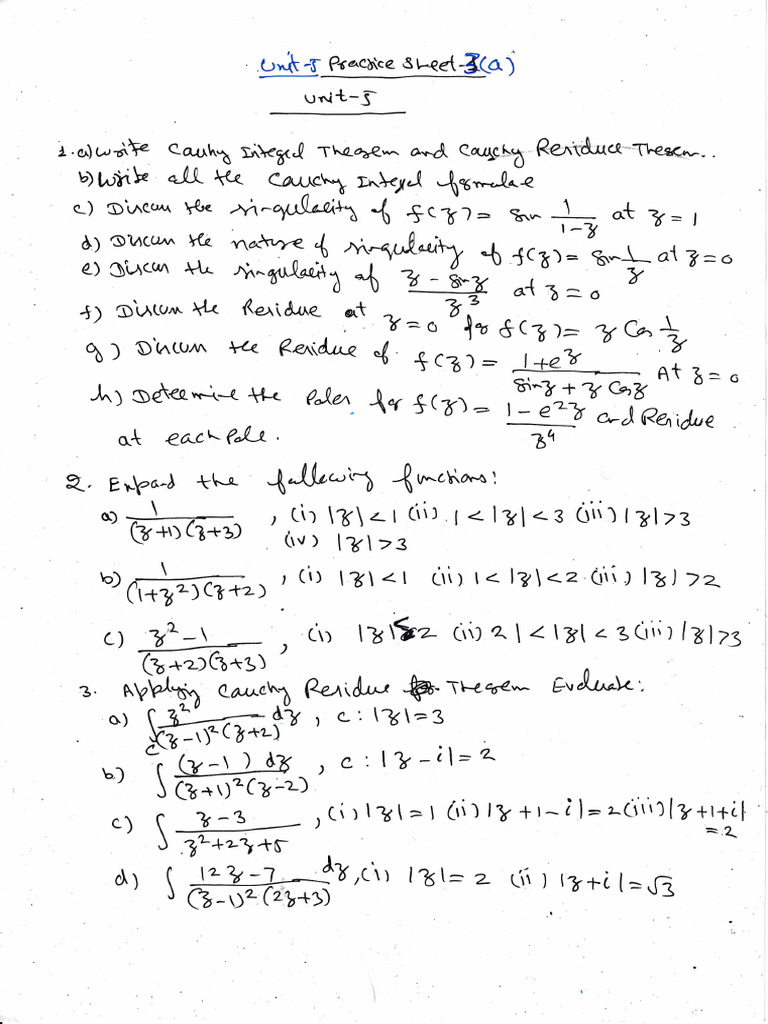 Unit-5 Practice Sheet-3(a)
Unit-5
1. a) Write Cauchy Integral Theorem and Cauchy Residue Theorem..
b) Write all the Cauchy Integral formulae
c) Discuss the singularity of f(z) = sin 1/(1-z) at z = 1
d) Discuss the nature of singularity of f(z) = sin 1/z at z = 0
e) Discuss the singularity of (z - sin z)/z³ at z = 0
f) Discuss the Residue at z = 0 for f(z) = z Cos 1/z
g) Discuss the Residue of f(z) = (1+e^z)/(sin z + z Cos z) At z = 0
h) Determine the Poles for f(z) = (1 - e^2z)/z⁴ and Residue
at each Pole.
2. Expand the following functions:
a) 1/((z+1)(z+3)) , (i) |z| < 1 (ii) 1 < |z| < 3 (iii) |z| > 3
(iv) |z| > 3
b) 1/((1+z²)(z+2)) , (i) |z| < 1 (ii) 1 < |z| < 2 (iii) |z| > 2
c) (z²-1)/((z+2)(z+3)) , (i) |z| < 2 (ii) 2 | < |z| < 3 (iii) |z| > 3
3. Applying Cauchy Residue Theorem Evaluate:
a) ∫_c z²/((z-1)²(z+2)) dz , c : |z| = 3
b.) ∫ (z-1) dz/((z+1)²(z-2)) , c : |z - i| = 2
c) ∫ (z-3)/(z²+2z+5) , (i) |z| = 1 (ii) |z+1-i| = 2 (iii) |z+1+i|
= 2
d) ∫ (12z-7)/((z-1)²(2z+3)) dz, (i) |z| = 2 (ii) |z+i| = √3